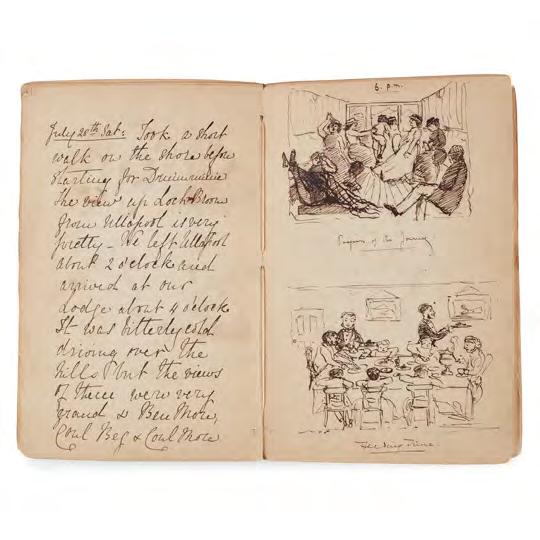 July 28th Sat: Took a short
walk on the shore before
starting for Drumrunie
The view up Loch Broom
from Ullapool is very
pretty – We left Ullapool
about 2 o'clock and
arrived at our
Lodge about 4 o'clock
It was bitterly cold
driving over the
hills but the views
of them were very
grand & Ben More,
Coul Beg & Coul More
6. p.m.
of the Journey
Feeding Time.